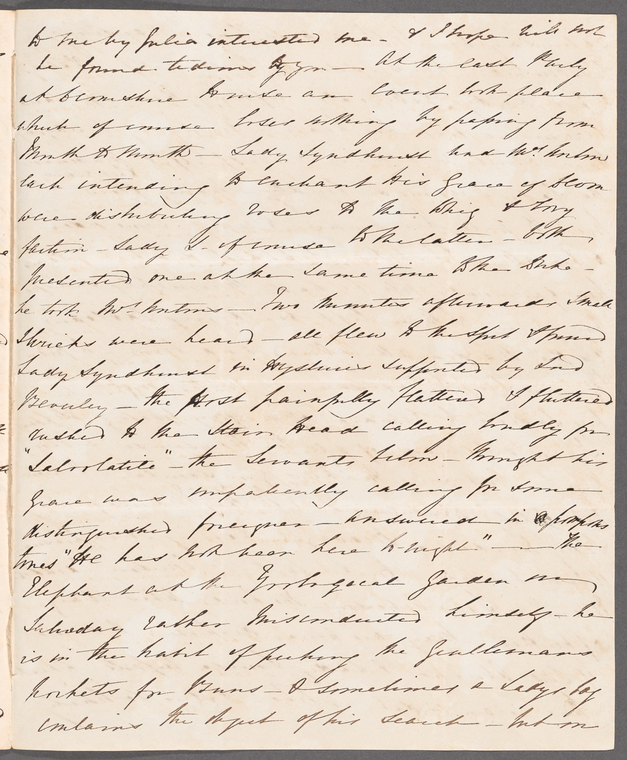 to me by Julia interested me - & I hope will not
be found tedious by you - At the last Party
at Devonshire House an event took place
which of course loses nothing by passing from
Mouth to Mouth - Lady Lyndhurst and Mrs. Norton
each intending to enchant His Grace of Devon
were distributing roses to the Whig & Tory
parties - Lady L. of course to the latter - both
presented one at the same time to the Duke -
he took Mrs. Nortons - Two Minutes afterwards Small
Shrieks were heard - all flew to the spot & found
Lady Lyndhurst in Hysterics supported by Lord
Beverley - the Host painfully flattered & fluttered
rushed to the Stair Head calling loudly for
"Salvolatile" - the Servants below - thought his
Grace was impatiently calling for some
distinguished foreigner - answered in pompous
tones "He has not been here to-night" - The
Elephant at the Zoological Garden on
Saturday rather Misconducted himself - he
is in the habit of picking the Gentlemans
Pockets for Buns - & sometimes a Ladys bag
contains the object of his search - but on